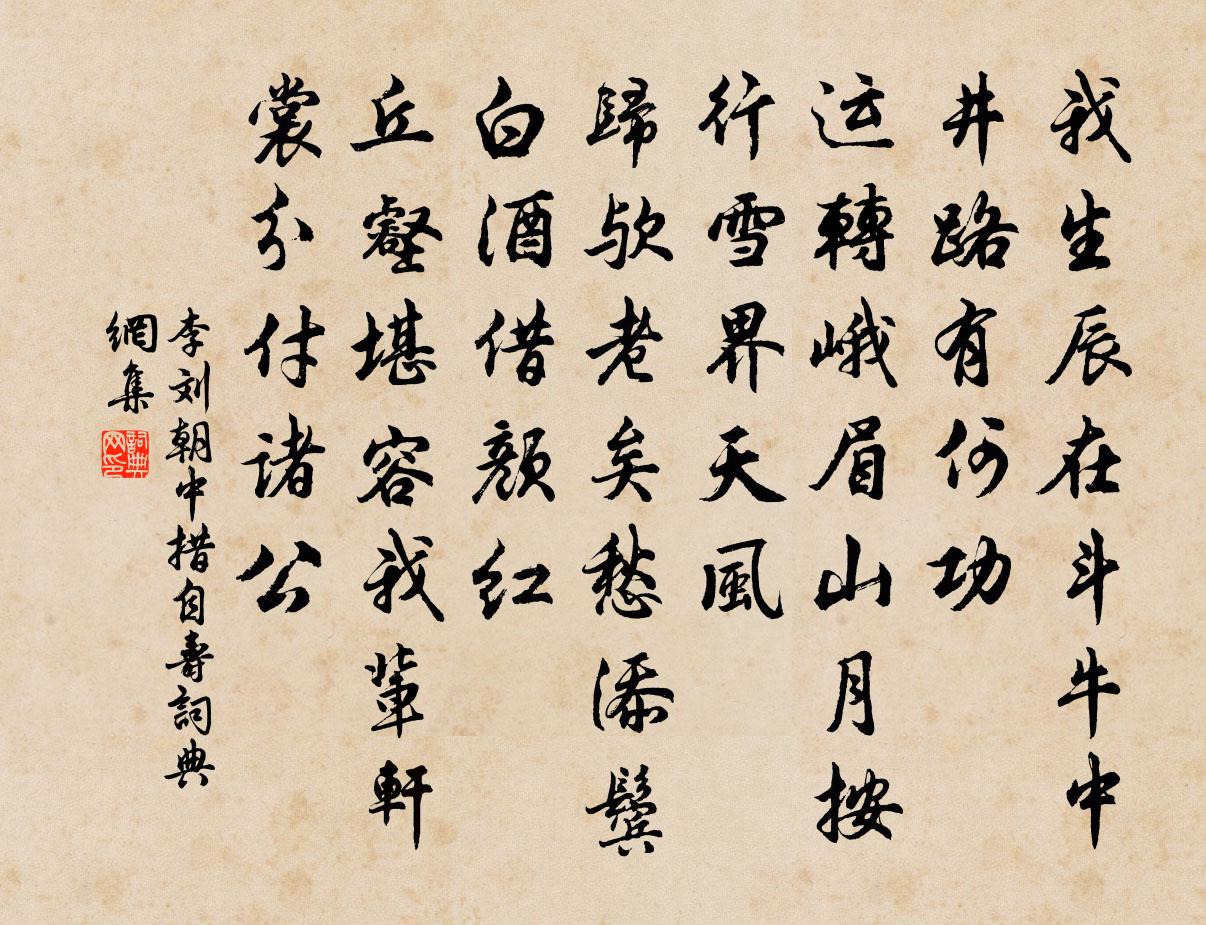 我生辰在斗牛中
井路有何功
运轉峨眉山月按
行雪界天風
歸欤老矣愁添鬓
白酒借颜红
丘壑堪容我輩軒
裳分付诸公
李刘朝中措自壽詞典
網集
詞典
网印